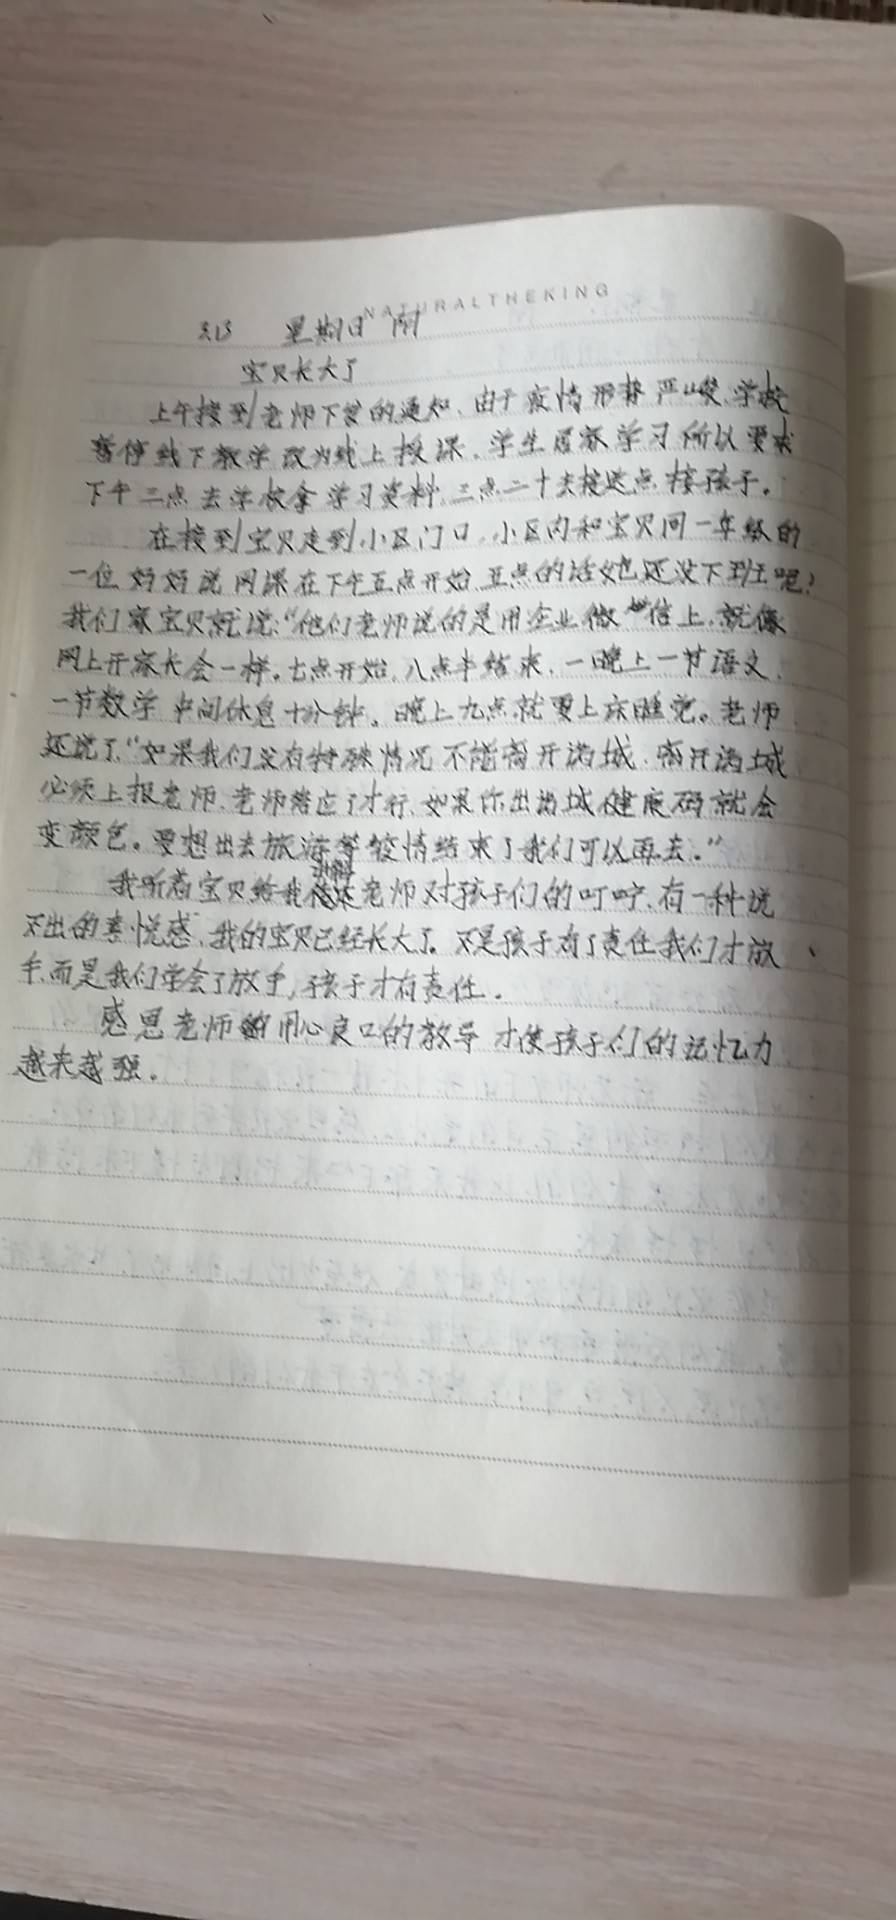 NATURALTHEKING
3.13 星期日 阴
宝贝长大了
上午接到老师下发的通知、由于疫情形势严峻、学校
暂停线下教学改为线上授课、学生居家学习所以要求
下午三点去学校拿学习资料、三点二十去接送点接孩子。
在接到宝贝走到小区门口、小区内和宝贝同一年级的
一位妈妈说网课在下午五点开始、五点的话她还没下班呢?
我们家宝贝就说:“他们老师说的是用企业微信上、就像
网上开家长会一样。七点开始、八点半结束、一晚上一节语文、
一节数学中间休息十分钟。晚上九点就要上床睡觉。老师
还说了“如果我们没有特殊情况不能离开潞城、离开潞城
必须上报老师、老师答应了才行、如果你出潞城健康码就会
变颜色。要想出去旅游等疫情结束了我们可以再去。”
我听着宝贝给我讲解老师对孩子们的叮咛、有一种说
不出的喜悦感、我的宝贝已经长大了。不是孩子有了责任我们才放
手、而是我们学会了放手,孩子才有责任。
感恩老师的用心良口的教导才使孩子们的记忆力
越来越强。